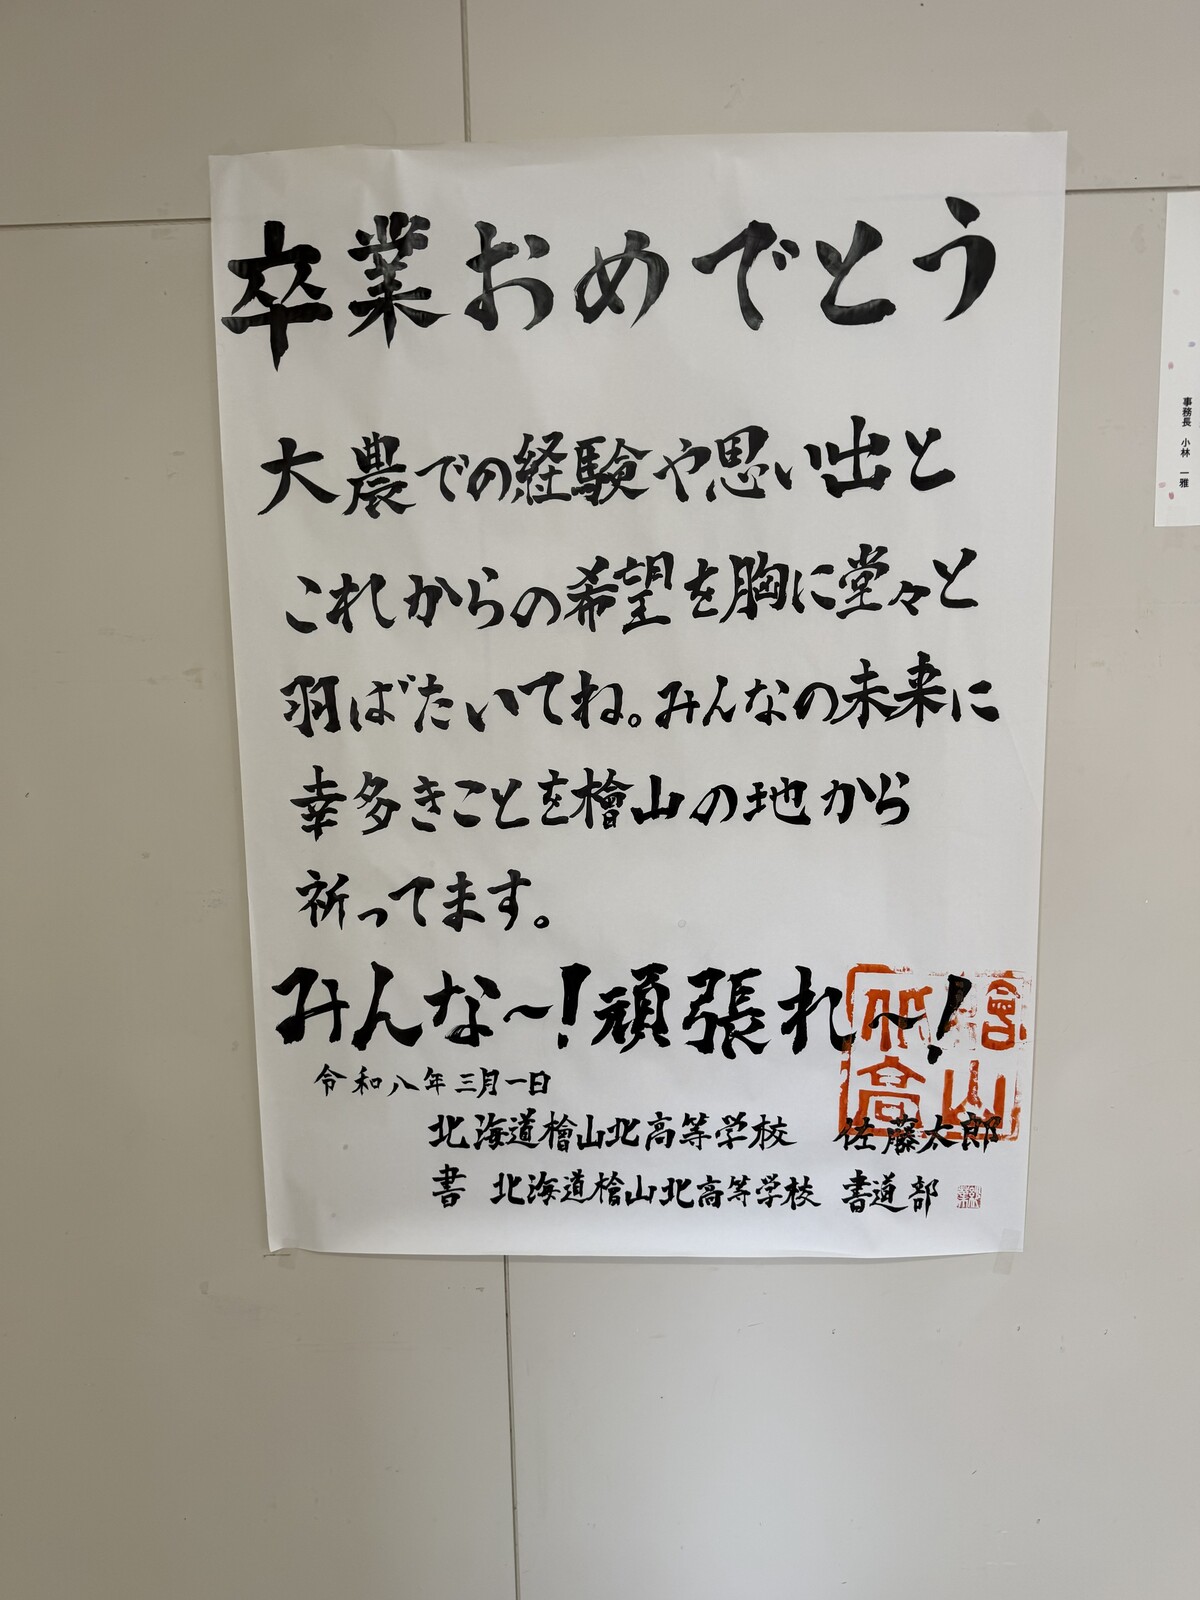 卒業おめでとう
大農での経験や思い出と
これからの希望を胸に堂々と
羽ばたいてね。みんなの未来に
幸多きことを檜山の地から
祈ってます。
みんな〜!頑張れ〜!
令和八年三月一日
北海道檜山北高等学校 佐藤太郎
書 北海道檜山北高等学校 書道部
檜山
北高
事務長 小林 一雅